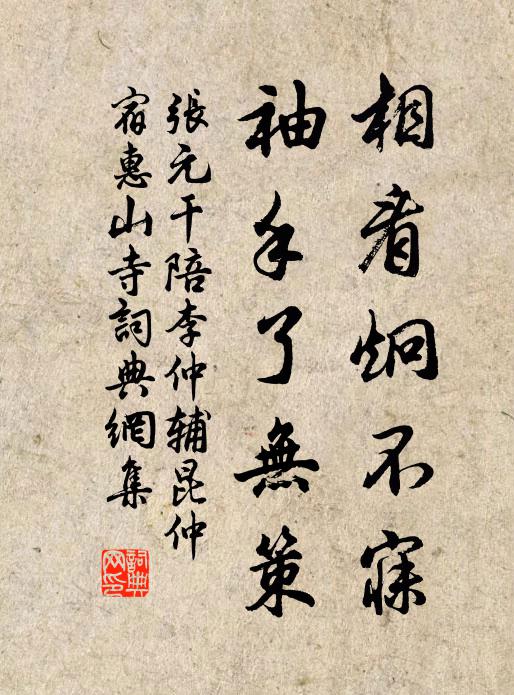 相看炯不寐
袖手了無策
張元干陪李仲辅昆仲
宿惠山寺詞典網集
詞典網印